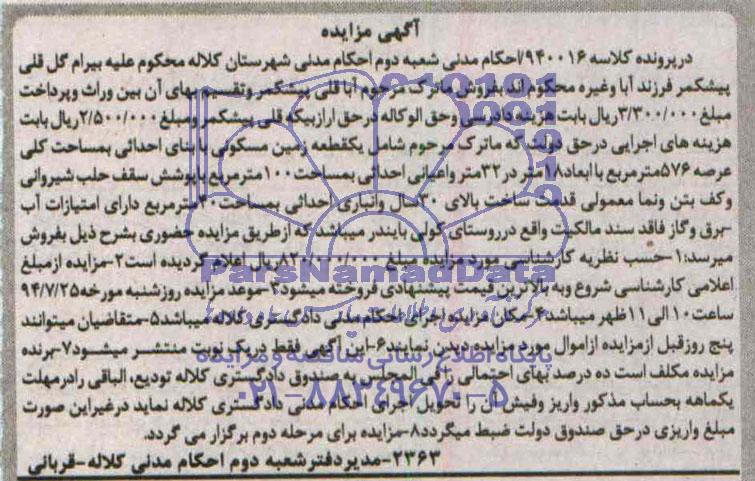 آگهی مزایده
در پرونده کلاسه ۹۴۰۰۱۶/احکام مدنی شعبه دوم احکام مدنی شهرستان کلاله محکوم علیه بیرام گل قلی
پیشکمر فرزند آبا وغیره محکوم اند بفروش ماترک مرحوم آبا قلی پیشکمر وتقسیم بهای آن بین وراث وپرداخت
مبلغ ۳/۳۰۰/۰۰۰ریال بابت هزینه دادرسی وحق الوکاله درحق ارازبیکه قلی پیشکمر ومبلغ ۲/۵۰۰/۰۰۰ریال بابت
هزینه های اجرایی درحق دولت،که ماترک مرحوم شامل یکقطعه زمین مسکونی بابنای احداثی بمساحت کلی
عرصه ۵۷۶مترمربع باابعاد۱۸متر در۳۲متر واعیانی احداثی بمساحت۱۰۰مترمربع باپوشش سقف حلب شیروانی
وکف بتن ونما معمولی قدمت ساخت بالای ۳۰سال وانباری احداثی بمساحت۴۰مترمربع دارای امتیازات آب
-برق وگاز فاقد سند مالکیت واقع درروستای کولی بایندر میباشدکه ازطریق مزایده حضوری بشرح ذیل بفروش
میرسد:۱-حسب نظریه کارشناسی مورد مزایده مبلغ ۸۲۰/۰۰۰/۰۰۰ریال اعلام گردیده است۲-مزایده ازمبلغ
اعلامی کارشناسی شروع وبه بالاترین قیمت پیشنهادی فروخته میشود۳-موعد مزایده روزشنبه مورخه۹۴/۷/۲۵
ساعت۱۰الی۱۱ظهر میباشد۴-مکان مزایده اجرای احکام مدنی دادگستری کلاله میباشد۵-متقاضیان میتوانند
پنج روزقبل ازمزایده ازاموال مورد مزایده دیدن نمایند۶-این آگهی فقط دریک نوبت منتشر میشود۷-برنده
مزایده مکلف است ده درصد بهای احتمالی را فی المجلس به صندوق دادگستری کلاله تودیع، الباقی رادرمهلت
یکماهه بحساب مذکور واریز وفیش آن را تحویل اجرای احکام مدنی دادگستری کلاله نماید درغیراین صورت
مبلغ واریزی درحق صندوق دولت ضبط میگردد۸-مزایده برای مرحله دوم برگزار می گردد.
۲۳۶۳-مدیردفترشعبه دوم احکام مدنی کلاله-قربانی
ParsNamadData
پایگاه اطلاع رسانی مناقصه و مزایده
۰۲۱-۸۸۳۴۹۶۷۰-۵